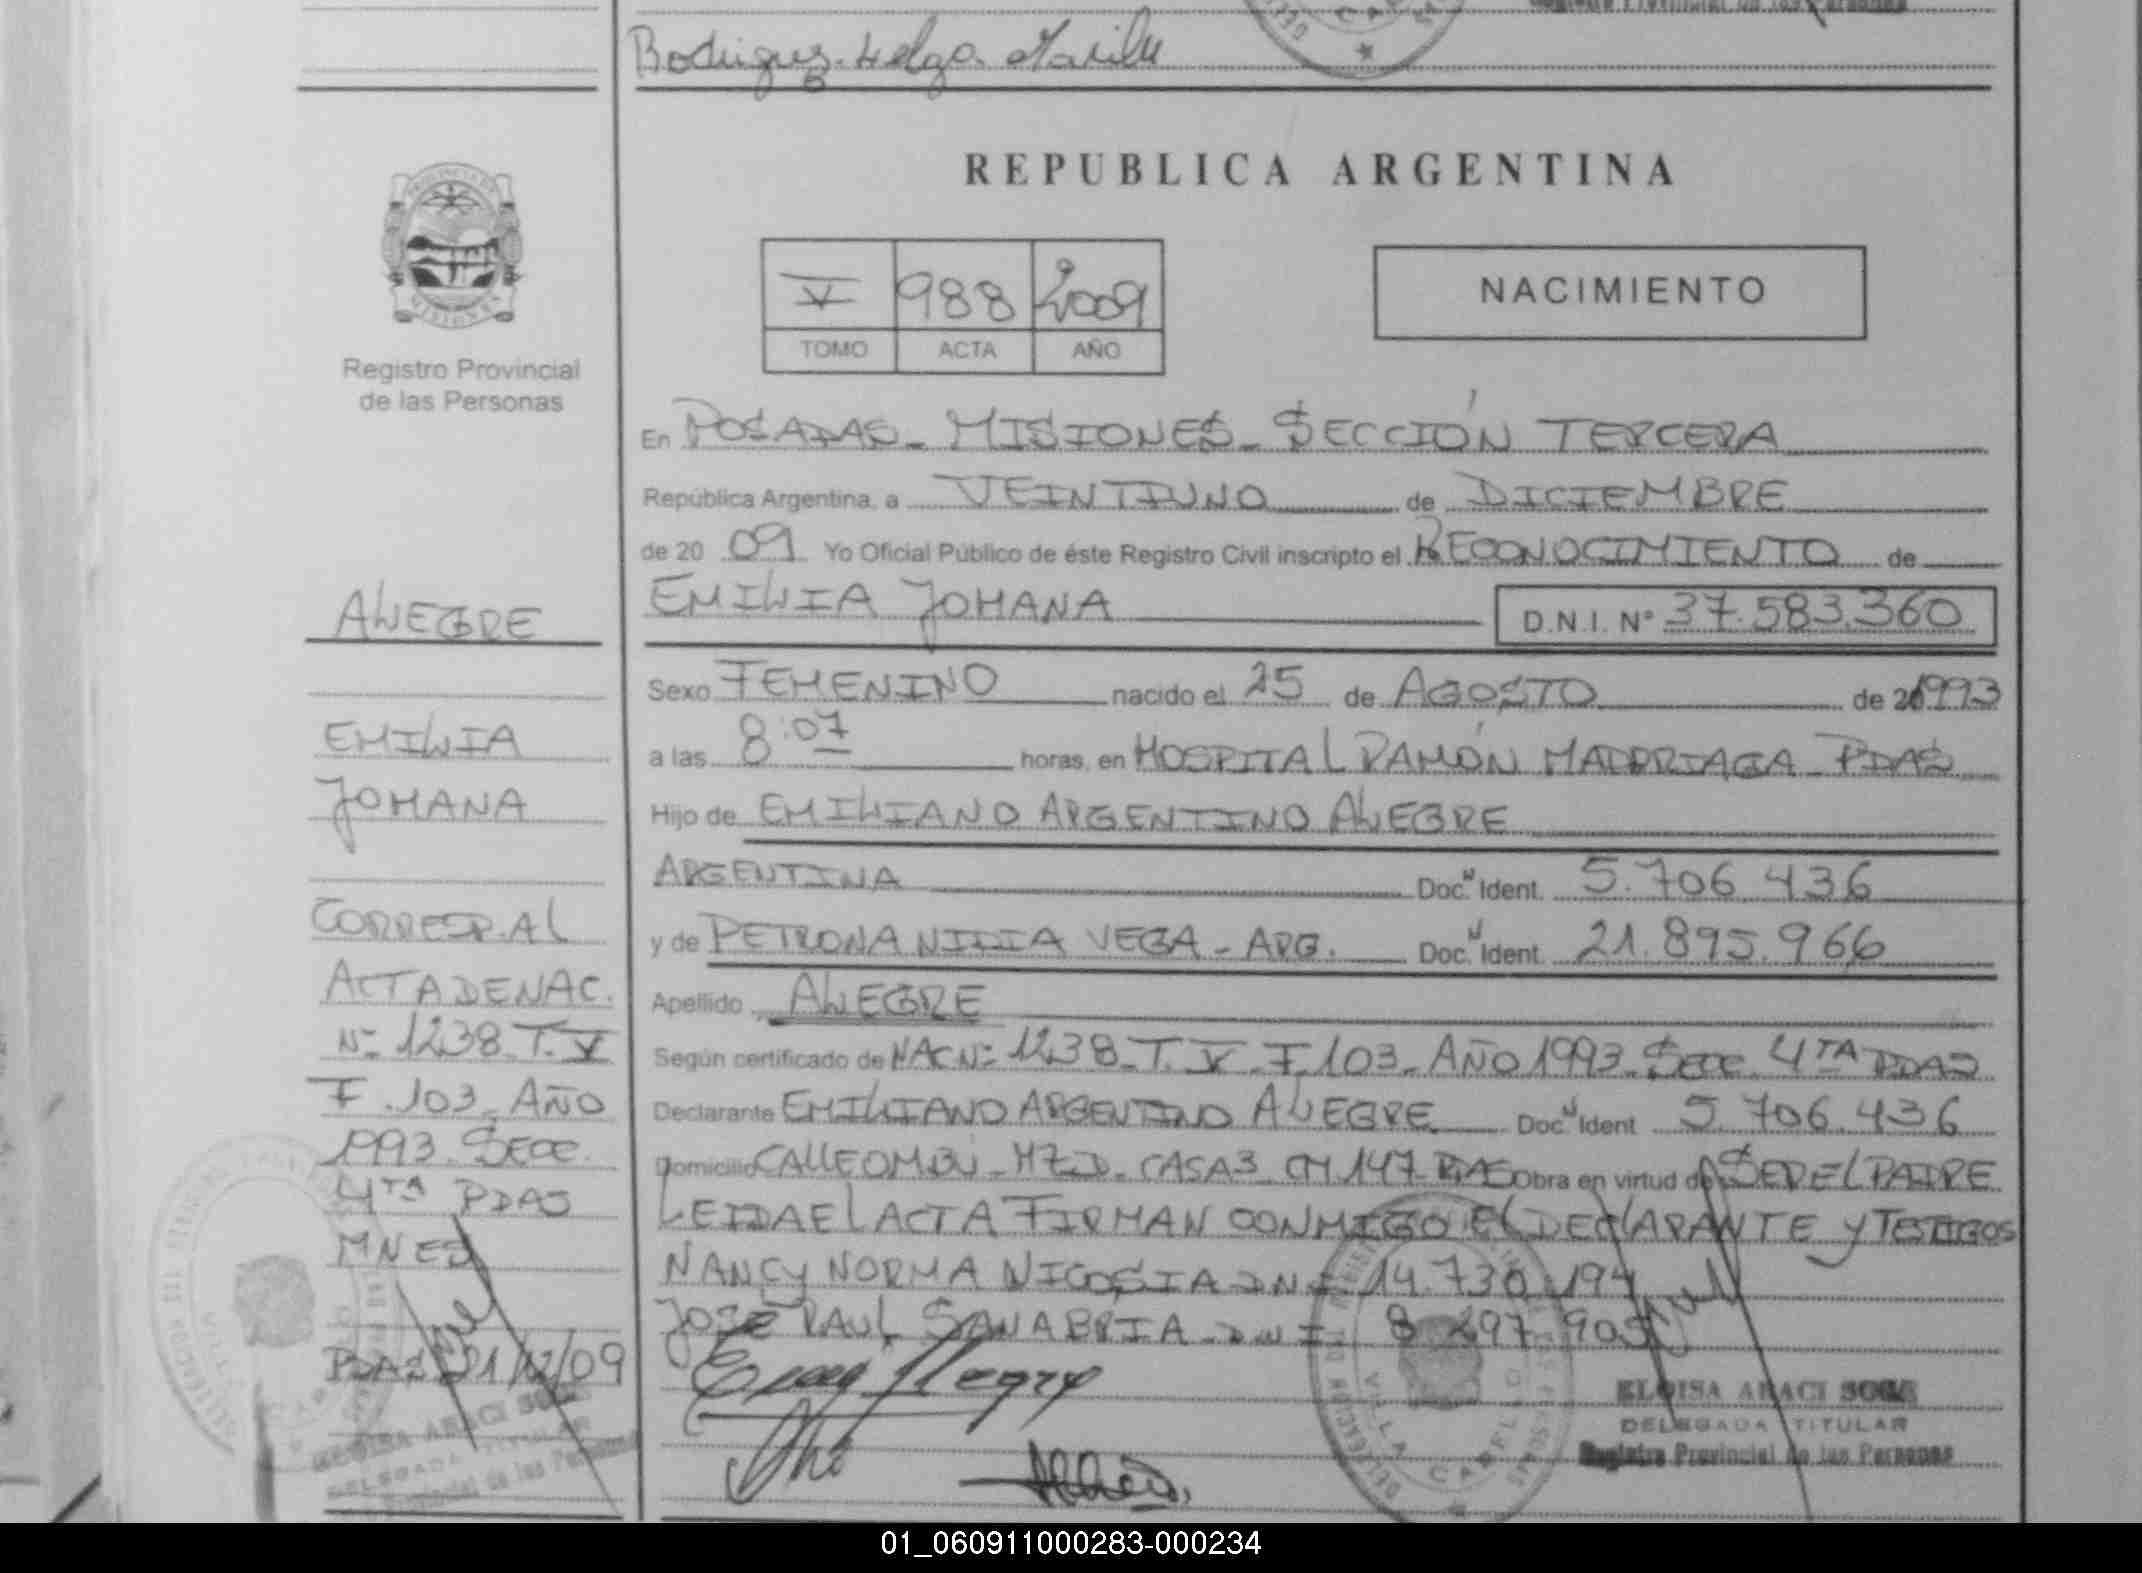 Rodriguez. Helga. Marilu
REPUBLICA ARGENTINA
V 988 2009
TOMO ACTA AÑO
NACIMIENTO
Registro Provincial
de las Personas
En POSADAS - MISIONES - SECCIÓN TERCERA
República Argentina, a VEINTIUNO de DICIEMBRE
de 20 09 Yo Oficial Público de éste Registro Civil inscripto el RECONOCIMIENTO de
ALEGRE
EMILIA JOHANA D.N.I. Nº 37.583.360
Sexo FEMENINO nacido el 25 de AGOSTO de 1993
EMILIA
JOHANA
a las 8:07 horas, en HOSPITAL RAMÓN MADRRIAGA - PDAS
Hijo de EMILIANO ARGENTINO ALEGRE
ARGENTINA Doc. Ident. 5.706.436
y de PETRONA NIDIA VEGA - ARG. Doc. Ident. 21.895.966
Apellido ALEGRE
Según certificado de NAC Nº 1238 - T. V - F. 103 - AÑO 1993 - SECC. 4TA PDAS
Declarante EMILIANO ARGENTINO ALEGRE Doc. Ident 5.706.436
Domicilio CALLE OMBÚ - MZ D - CASA 3 CH 147 PDAS Obra en virtud de SER EL PADRE
LEIDA EL ACTA FIRMAN CONMIGO EL DECLARANTE Y TESTIGOS
NANCY NORMA NICOSIA DNI 14.730.194
JOSÉ RAUL SANABRIA - DNI 8.297.905
CORRESP. AL
ACTA DE NAC.
Nº 1238 - T. V
F. 103 - AÑO
1993 - SECC.
4TA PDAS
MNES
PDAS 21/12/09
ELOISA ARACI SOSA
DELEGADA TITULAR
Registro Provincial de las Personas
ELOISA ARACI SOSA
DELEGADA TITULAR
Provincial de las Personas
01_060911000283-000234